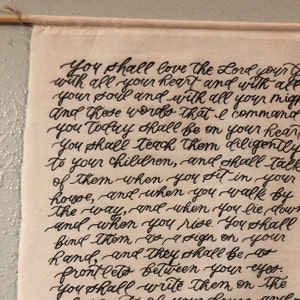 You shall love the Lord your
with all your heart and with all
your soul and with all your might
and these words that I command
you today shall be on your heart
You shall teach them diligently
to your children, and shall talk
of them when you sit in your
house, and when you walk by
the way, and when you lie down
and when you rise. You shall
bind them as a sign on your
hand, and they shall be as
frontlets between your eyes
you shall write them on the